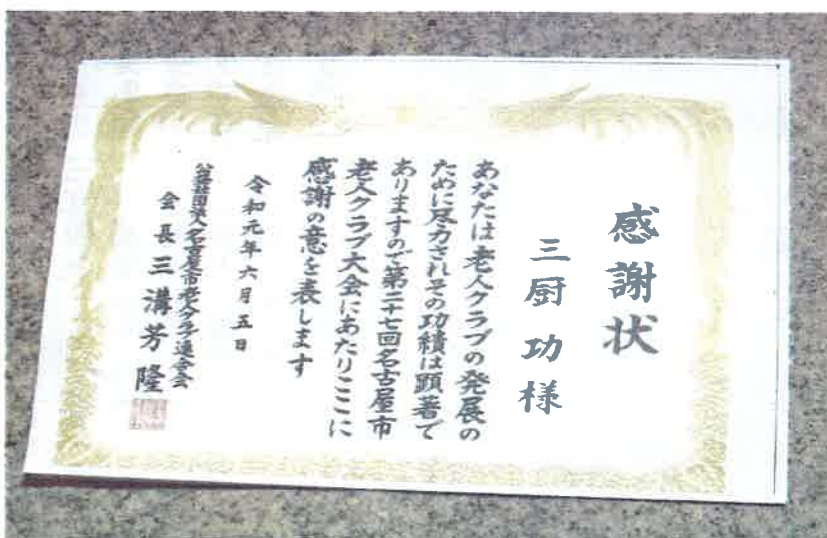 感謝状
三厨功様
あなたは老人クラブの発展の
ために尽力されその功績は顕著で
ありますので第二十七回名古屋市
老人クラブ大会にあたりここに
感謝の意を表します
令和元年六月五日
公益社団法人名古屋市老人クラブ連合会
会長三溝芳隆